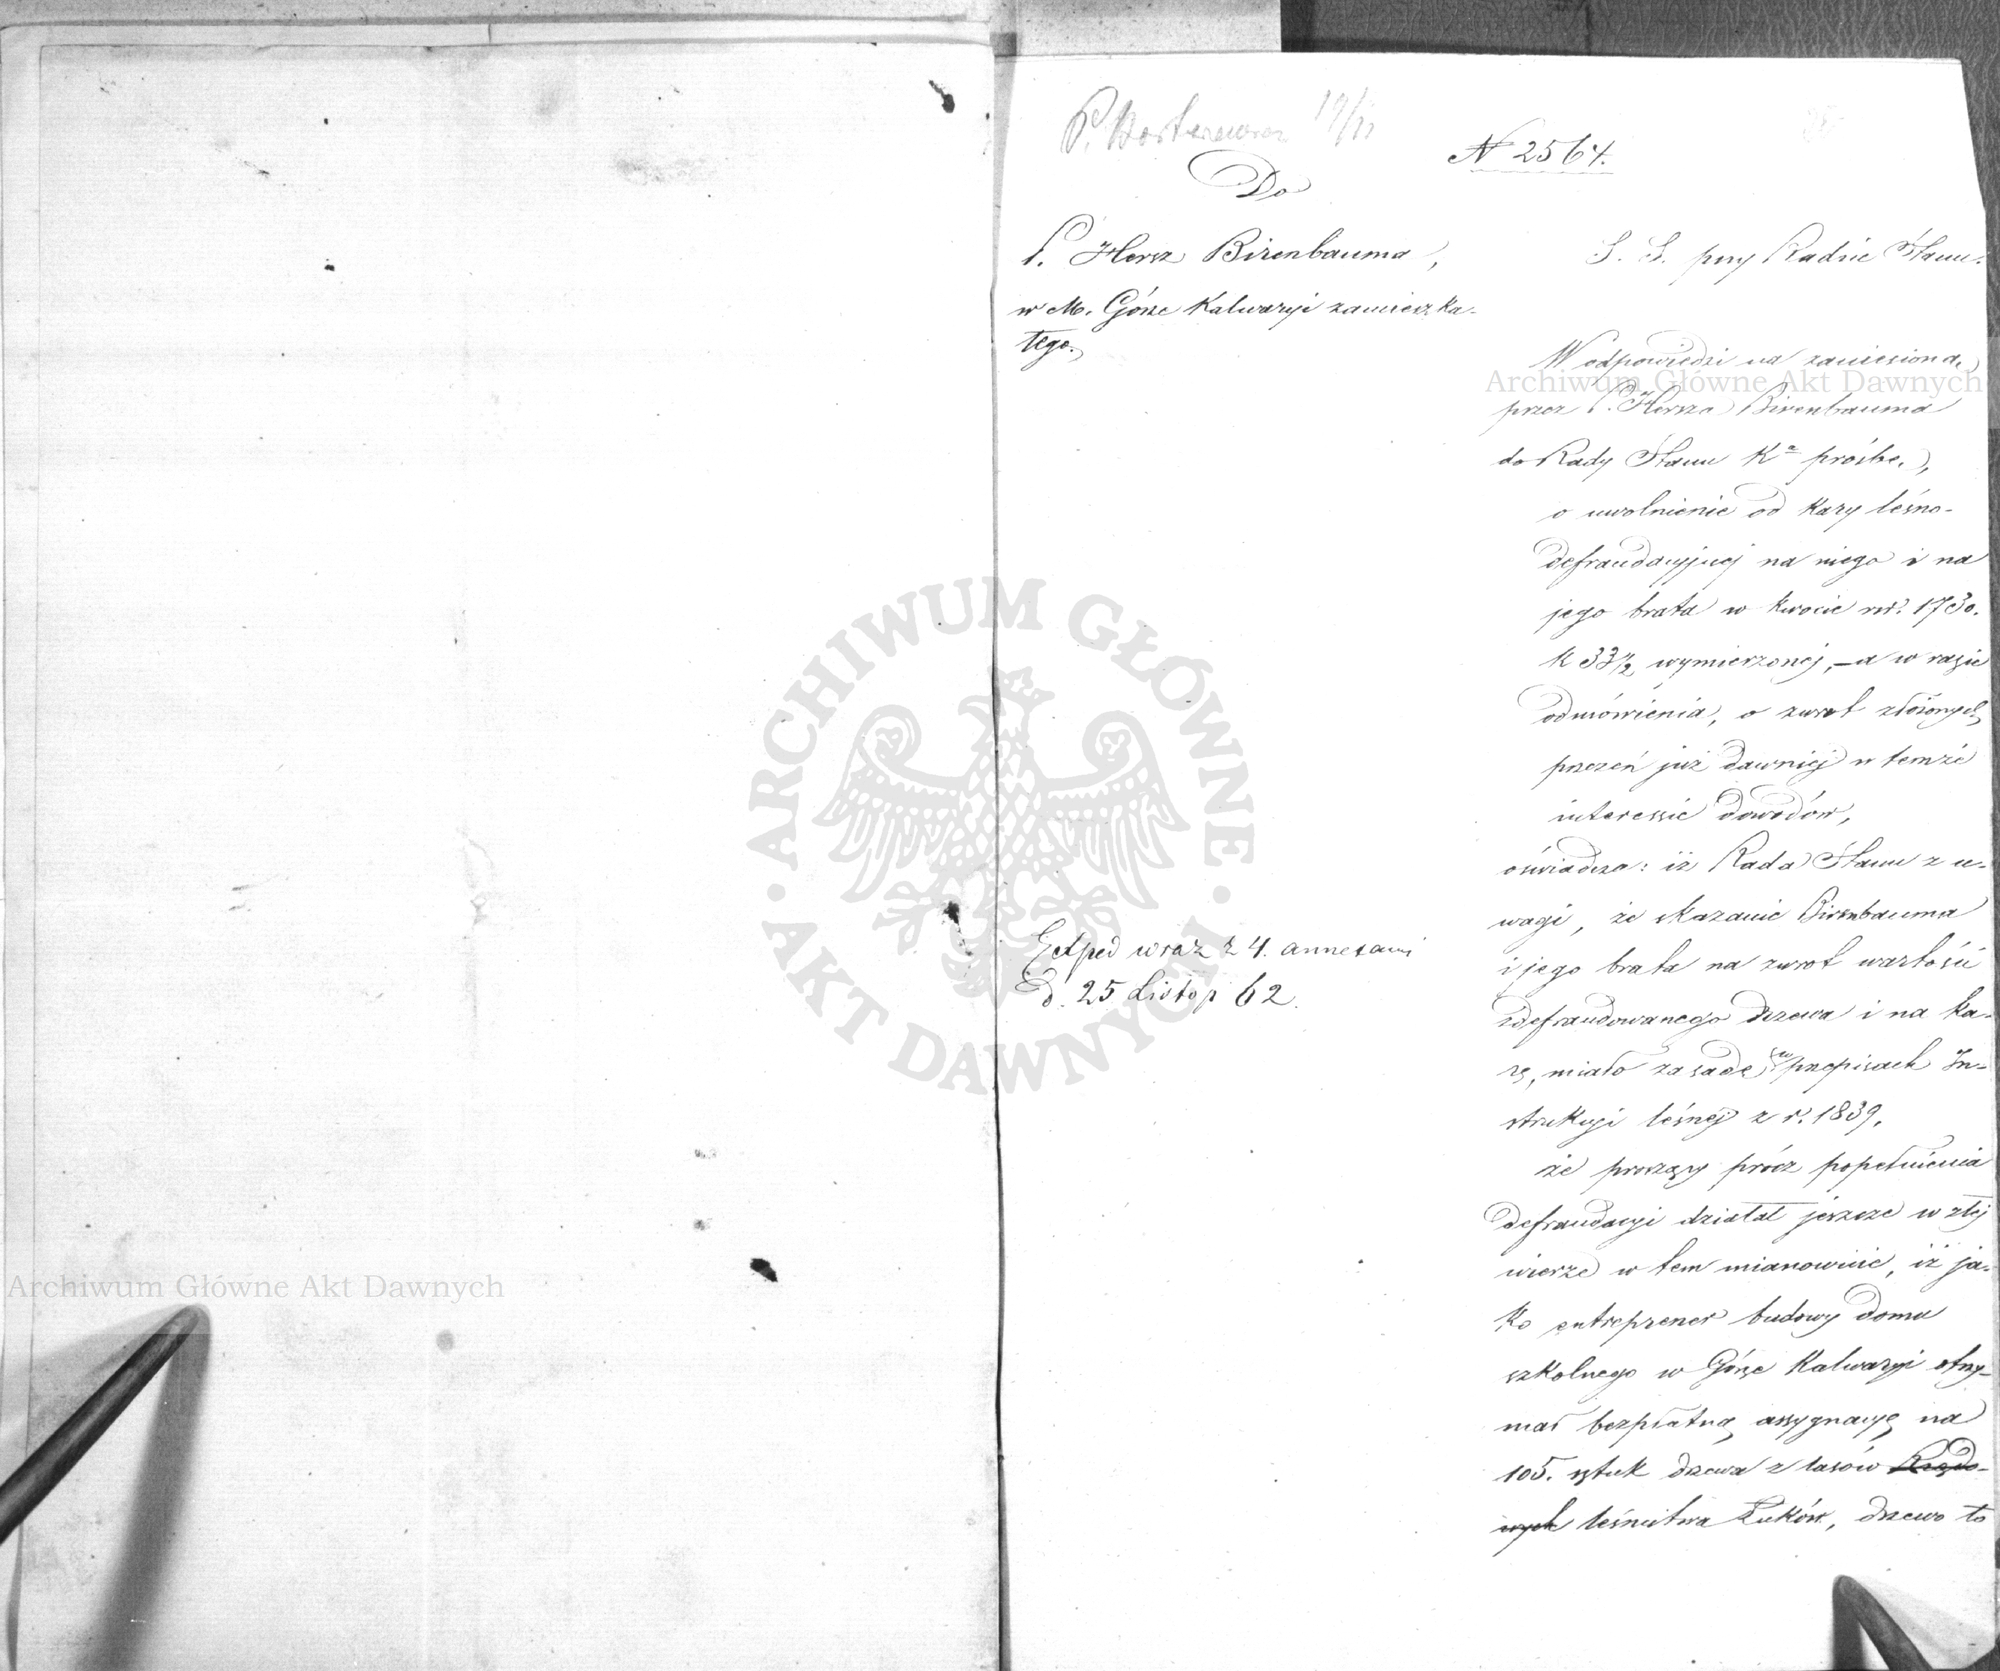 19/11
N 2564.
Do
P. Hersz Birenbauma,
w M. Górze Kalwaryi zamieszka-
łego.
Exped wraz z 4. annexami
d. 25 Listop 62.
S. S. przy Radzie Stanu.
W odpowiedzi na zaniesioną
przez P. Hersza Birenbauma
do Rady Stanu Ka prośbę,
o uwolnienie od kary leśno-
defraudacyjnej na niego i na
jego brata w kwocie rsr. 1730.
k 33½ wymierzonej, – a w razie
odmówienia, o zwrot złożonych
przezeń już dawniej w temże
interessie dowodów,
oświadcza: iż Rada Stanu z u-
wagi, że skazanie Birenbauma
i jego brata na zwrot wartości
zdefraudowanego drzewa i na ka-
rę, miało zasadę w przepisach In-
strukcyi leśnej z r. 1839,
że proszący prócz popełnienia
defraudacyi działał jeszcze w złej
wierze w tem mianowicie, iż ja-
ko entreprener budowy domu
szkolnego w Górze Kalwaryi otrzy-
mał bezpłatną assygnacyę na
105. sztuk drzewa z lasów Rządo-
wych leśnictwa Łuków, drzewo to
Archiwum Główne Akt Dawnych
Archiwum Główne Akt Dawnych
ARCHIWUM GŁÓWNE
AKT DAWNYCH